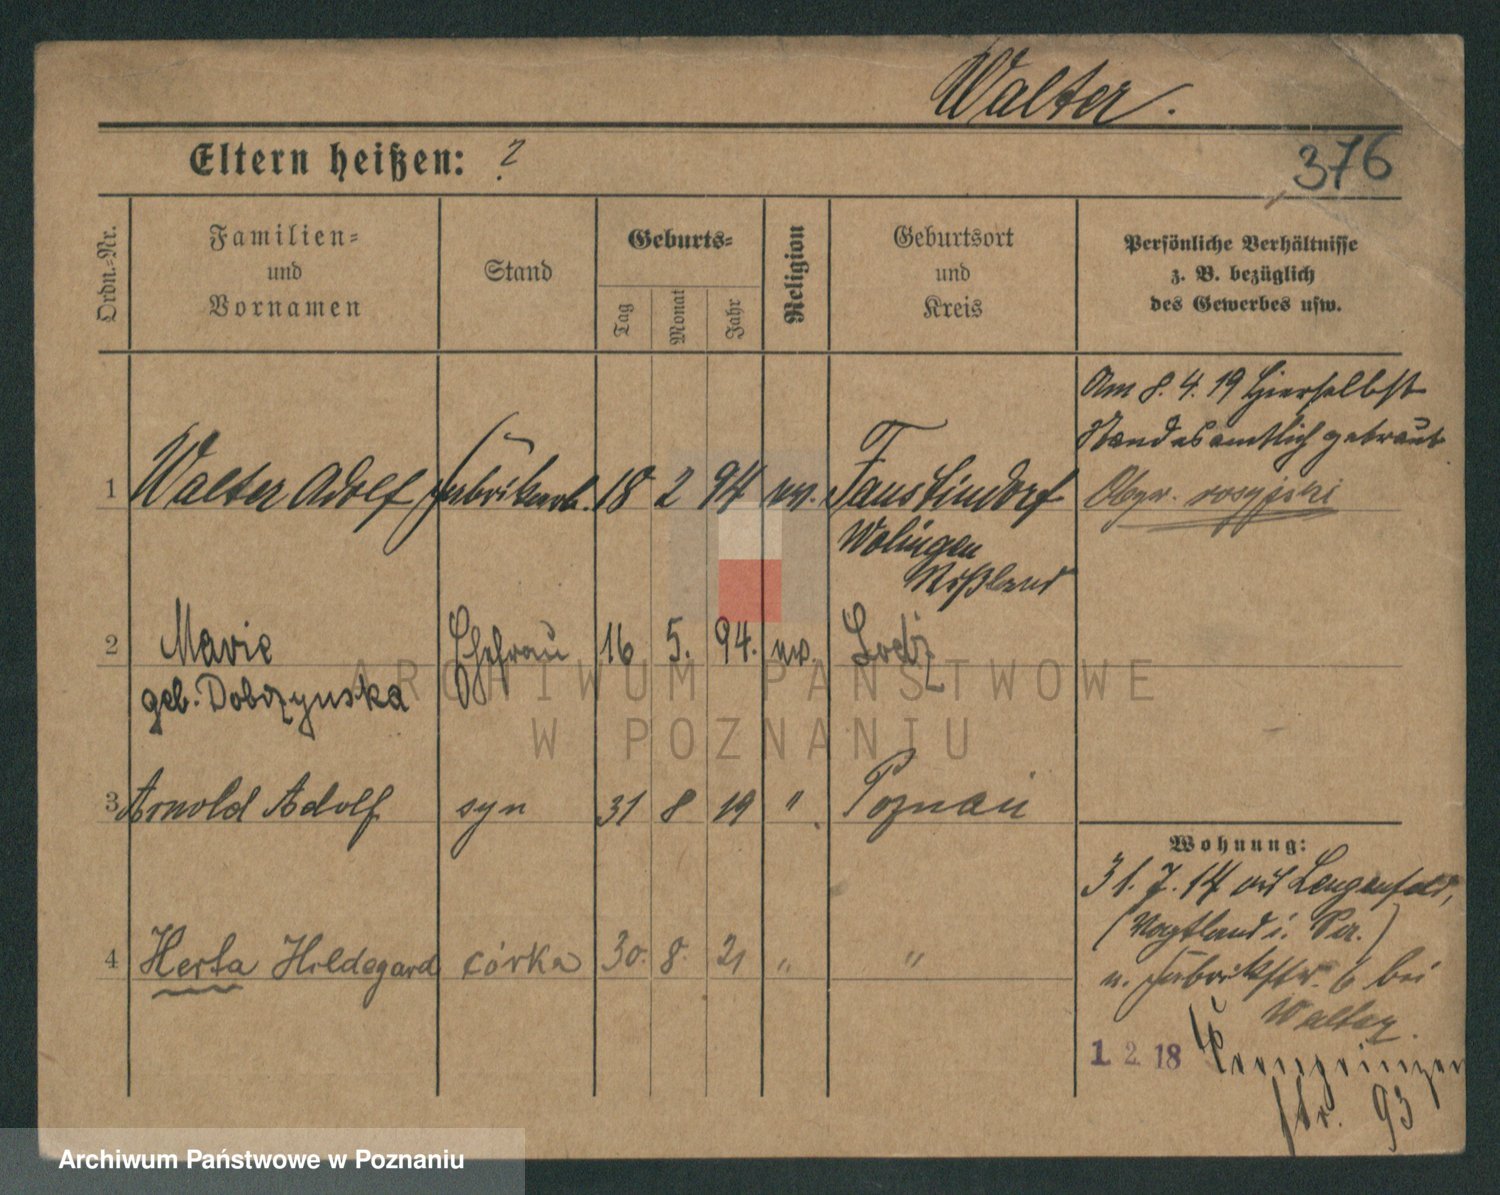 Walter.
Eltern heißen: ?
376
Ordn.-Nr.
Familien-
und
Vornamen
Stand
Geburts-
Tag
Monat
Jahr
Religion
Geburtsort
und
Kreis
Persönliche Verhältnisse
z. B. bezüglich
des Gewerbes usw.
Am 8. 4. 19 hierselbst
Standesamtlich getraut
1 Walter Adolf Fabrikarb. 18 2 94 ev. Faustindorf
Obyw. rosyjski
Wolingen
Rußland
2 Marie Ehefrau 16 5. 94. ev. Lodz
geb. Dobrzynska
ARCHIWUM PAŃSTWOWE
W POZNANIU
3 Arnold Adolf syn 31 8 19 " Poznań
4 Herta Hildegard córka 30. 8. 21 " "
Wohnung:
31. 7. 14 aus Lengenfeld,
(Vogtland i. )
n. Fabrikstr. 6 bei
Walter.
1. 2. 18 Kronprinzen
str. 93
Archiwum Państwowe w Poznaniu